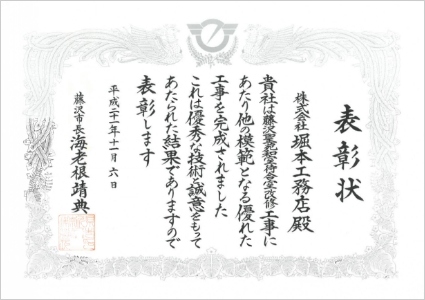 表彰状
株式会社 堀本工務店 殿
貴社は藤沢聖苑和室待合室改修工事に
あたり他の模範となる優れた
工事を完成されました
これは優秀な技術と誠意をもって
あたられた結果でありますので
表彰します
平成二十一年十一月六日
藤沢市長 海老根靖典